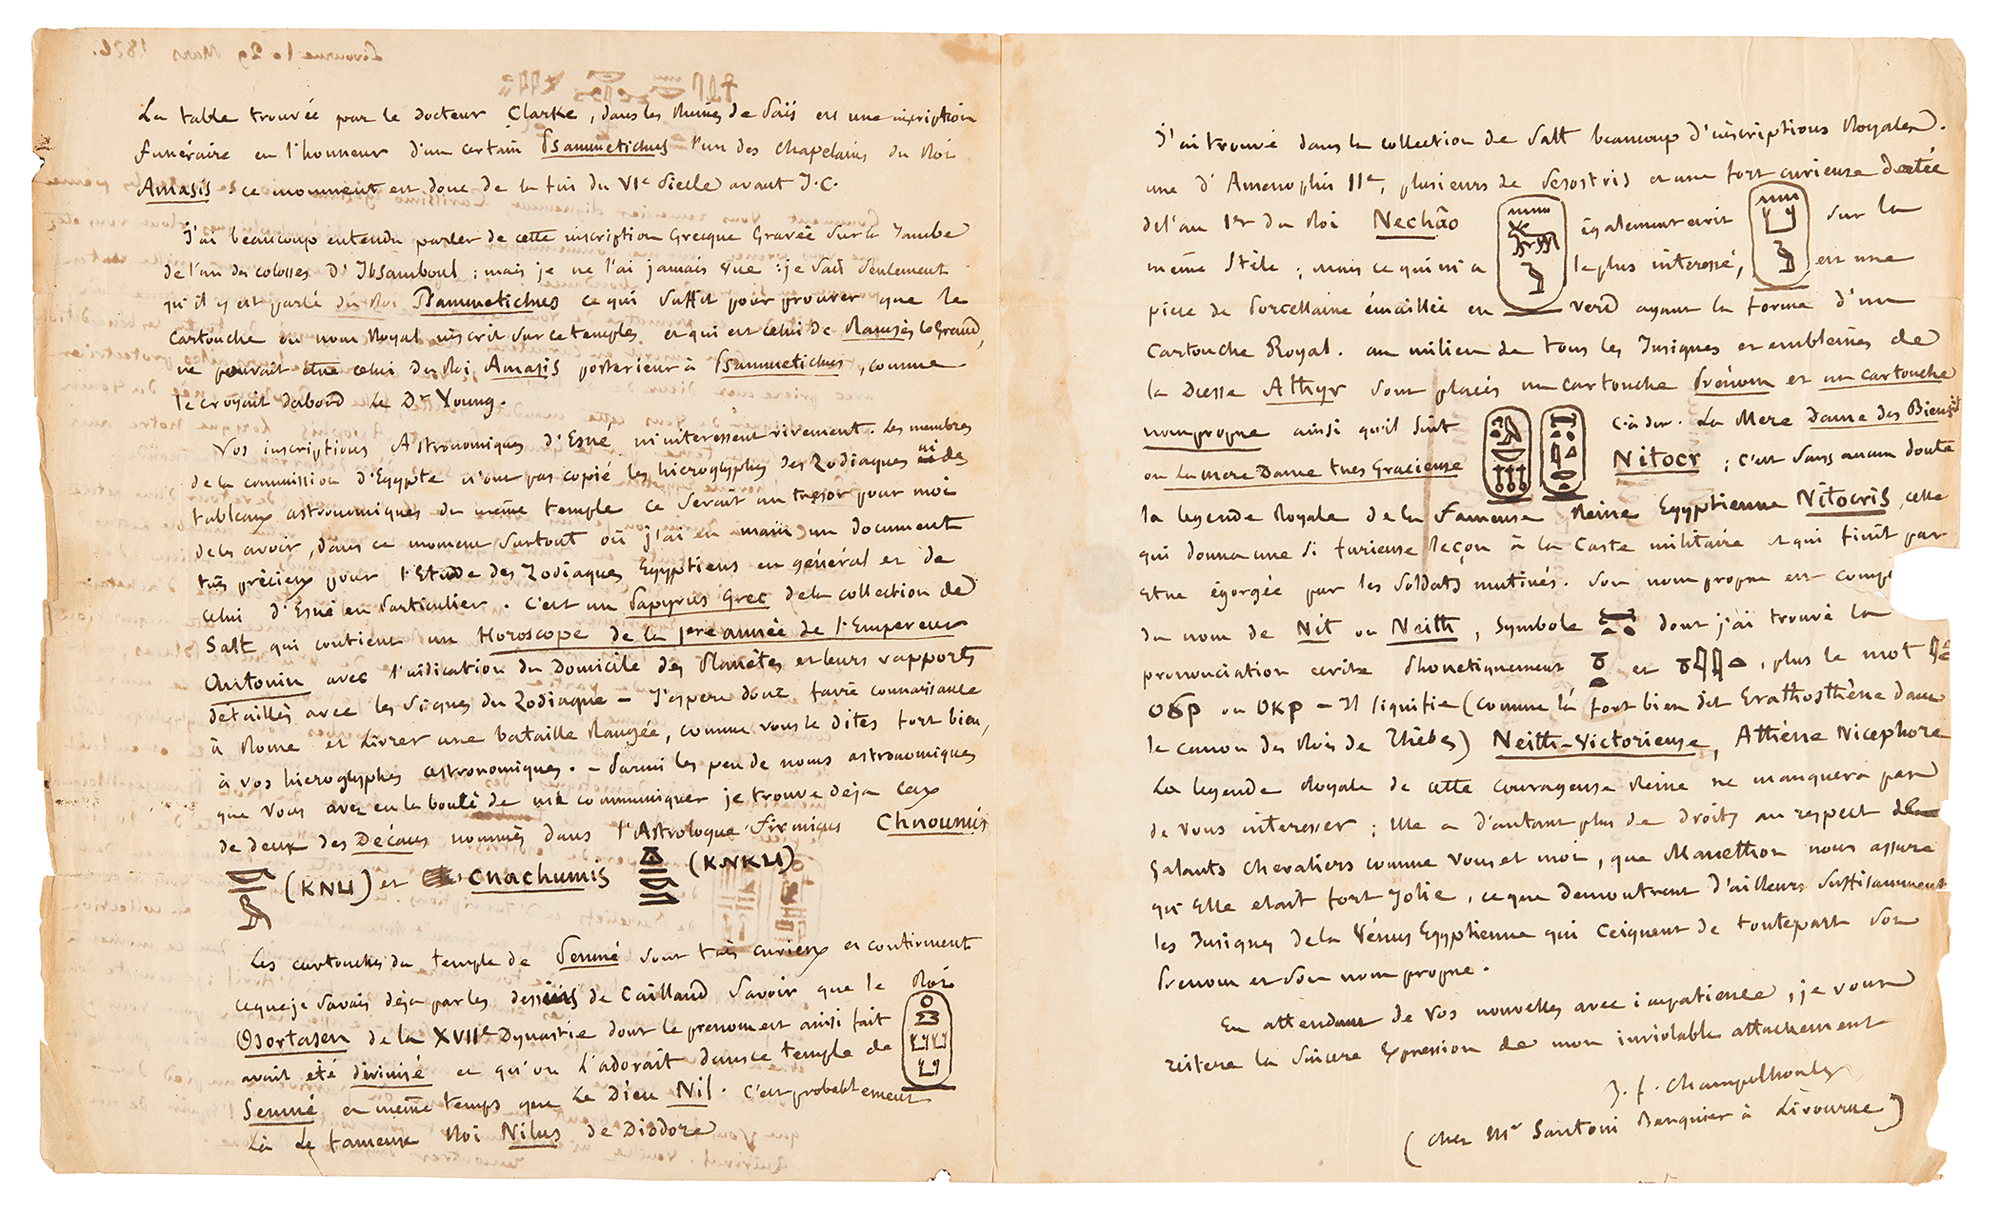 La table trouvée par le Docteur Clarke, dans les Ruines de Saïs est une inscription
funéraire en l'honneur d'un certain Psammetichus l'un des chapelains du Roi
Amasis. ce monument est donc de la fin du VIe Siecle avant J.C.
J'ai beaucoup entendu parler de cette inscription Grecque Gravée sur la Jambe
de l'un des colosses d'Ibsamboul; mais je ne l'ai jamais vue: je sais seulement
qu'il y est parlé du Roi Psammetichus ce qui suffit pour prouver que le
cartouche ou nom Royal inscrit sur ce temple, et qui est celui de Ramsès le Grand,
ne pouvait être celui du Roi Amasis posterieur à Psammetichus, comme
le croyait dabord le Dr Young.
Vos inscriptions Astronomiques d'Esné m'interessent vivement. Les membres
de la commission d'Egypte n'ont pas copié les hieroglyphes des Zodiaques ni des
tableaux astronomiques du même temple ce serait un tresor pour moi
de les avoir, dans ce moment surtout où j'ai en main un document
très précieux pour l'Etude des Zodiaques Egyptiens en général et de
celui d'Esné en particulier. C'est un Papyrus Grec de la collection de
Salt qui contient un Horoscope de la 1ere année de l'Empereur
Antonin avec l'indication du Domicile des Planètes et leurs rapports
détaillés avec les signes du Zodiaque – J'espere donc faire connaissance
à Rome et livrer une bataille Rangée, comme vous le dites fort bien,
à vos hieroglyphes astronomiques. – Parmi les peu de noms astronomiques
que vous avez eu la bonté de me communiquer je trouve deja ceux
de deux des Décans nommés dans l'Astrologue Firmicus Chnoumis
(KNH) et Cnachumis (KNKH)
Les cartouches du temple de Semné sont très curieux et confirment
ce que je savais déja par les dessins de Cailliaud savoir que le Roi
Osortasen de la XVIIe Dynastie dont le prenom est ainsi fait
avait été divinisé et qu'on l'adorait dans ce temple de
Semné en même temps que le Dieu Nil. C'est probablement
Là le fameux Roi Nilus de Diodore
J'ai trouvé dans la collection de Salt beaucoup d'inscriptions Royales.
une d'Amenophis IIe, plusieurs de Sesostris et une fort curieuse datée
de l'an 1er du Roi Nechao également écrit sur la
même Stèle; mais ce qui m'a le plus interessé, est une
piece de Porcellaine émaillée en verd ayant la forme d'un
Cartouche Royal. au milieu de tous les Insignes et emblêmes de
la Déesse Athyr sont placés un cartouche Prénom et un cartouche
nom propre ainsi qu'il suit c'à d. La Mere Dame des Biens
ou la mere Dame tres Gracieuse Nitocr; c'est sans aucun doute
la legende Royale de la fameuse Reine Egyptienne Nitocris, celle
qui donna une si furieuse leçon à la Caste militaire et qui finit par
etre égorgée par les soldats mutinés. Son nom propre est comp
du nom de Nit ou Neith, Symbole dont j'ai trouvé la
prononciation ecrite Phonetiquement et , plus le mot
Oϭρ ou OKP – Il signifie (comme l'a fort bien dit Erathosthène dans
le canon des Rois de Thèbes) Neith-Victorieuse, Athène Nicephore
La legende Royale de cette courageuse Reine ne manquera pas
de vous interesser; Elle a d'autant plus de droits au respect de
Galants chevaliers comme vous et moi, que Manethon nous assure
qu'Elle etait fort Jolie, ce que demontrent d'ailleurs suffisamment
les Insignes de la Vénus Egyptienne qui ceignent de toute part son
Prenom et son nom propre.
En attendant de vos nouvelles avec impatience, je vous
reitere la sincere Expression de mon inviolable attachement
J. f. Champollion
(chez Mr Santoni Banquier à Livourne)